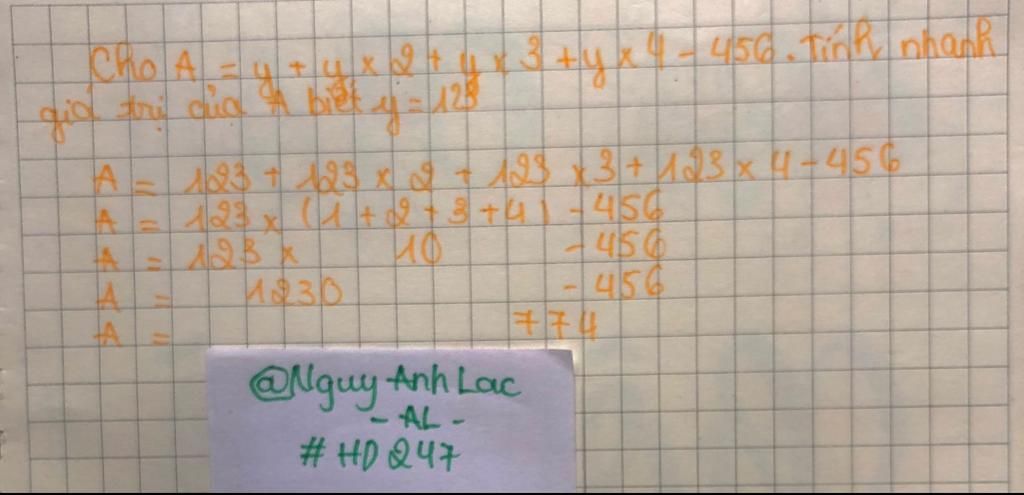 Cho A = y + y × 2 + y × 3 + y × 4 - 456. Tính nhanh
giá trị của A biết y = 123
A = 123 + 123 × 2 + 123 × 3 + 123 × 4 - 456
A = 123 × (1 + 2 + 3 + 4) - 456
A = 123 × 10 - 456
A = 1230 - 456
A = 774
@Nguy Anh Lac
- AL -
# HD 247